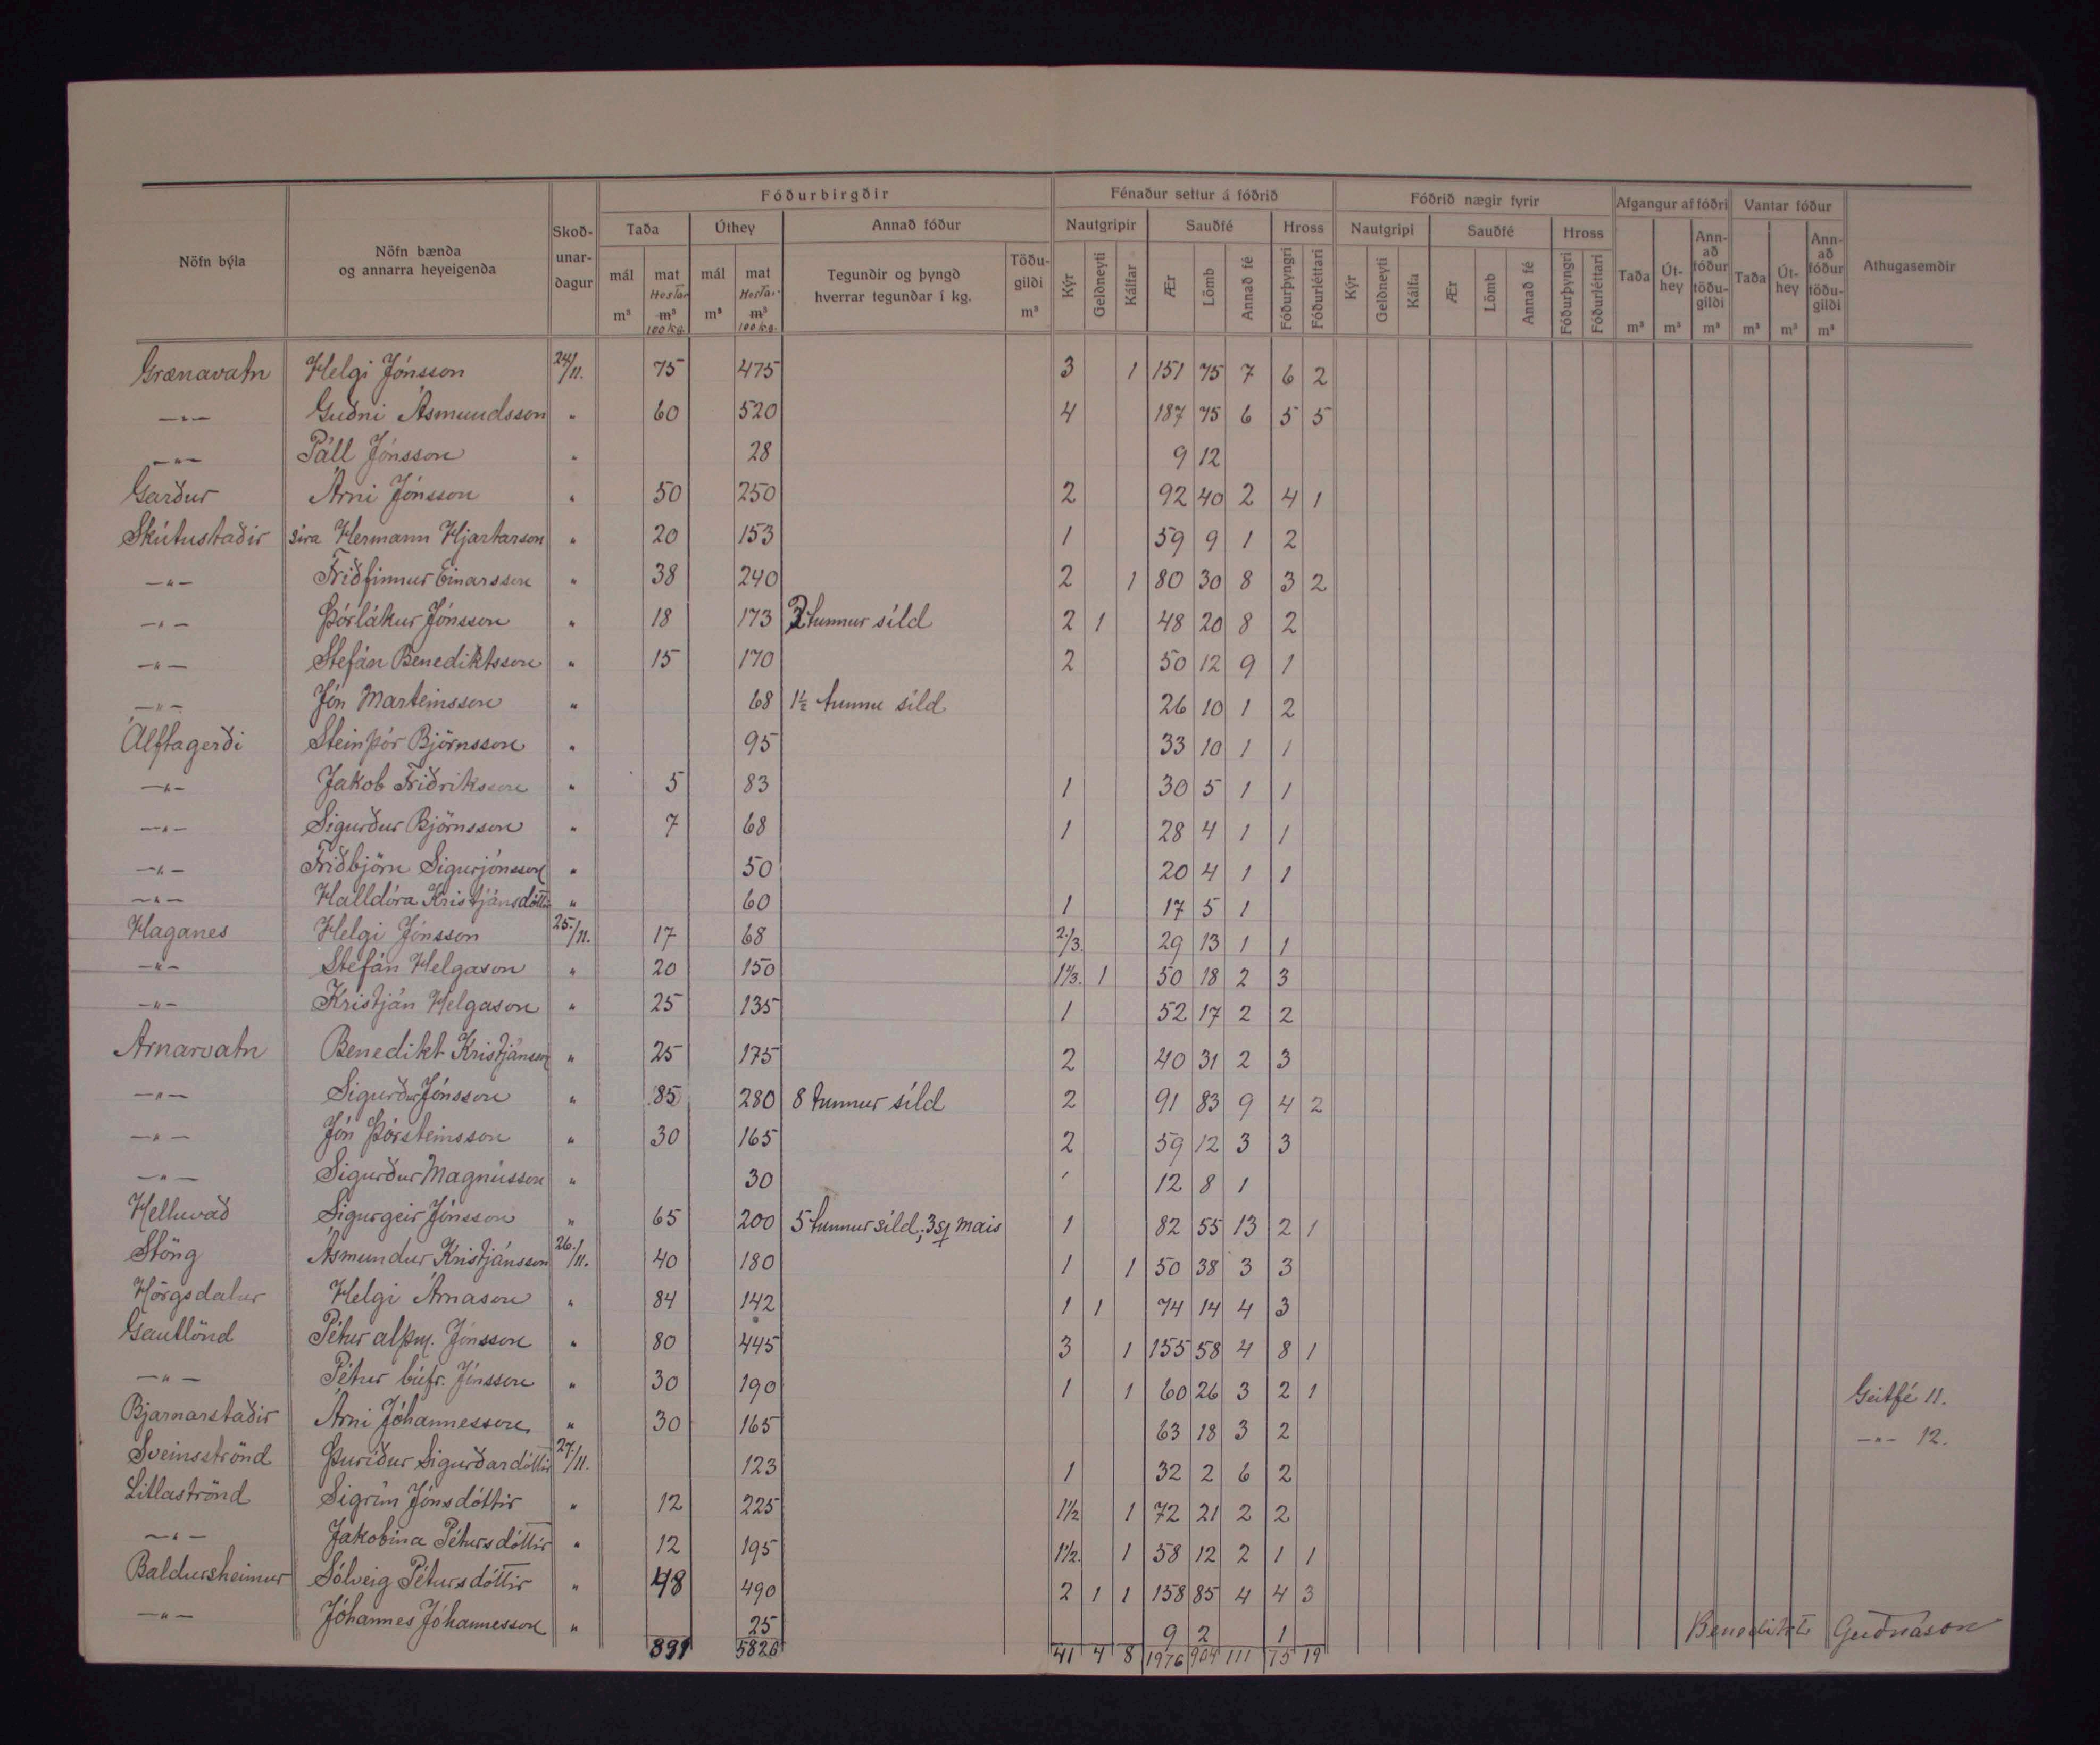 Fóðurbirgðir Fénaður settur á fóðrið Fóðrið nægir fyrir Afgangur af fóðri Vantar fóður
Nöfn býla Nöfn bænda og annarra heyeigenda Skoðunardagur Taða Úthey Annað fóður Nautgripir Sauðfé Hross Nautgripi Sauðfé Hross Taða Úthey Annað fóður töðugildi Taða Úthey Annað fóður töðugildi Athugasemdir
mál mat mál mat Tegundir og þyngd hverrar tegundar í kg. Töðugildi Kýr Geldneyti Kálfar Ær Lömb Annað fé Fóðurþyngri Fóðurléttari Kýr Geldneyti Kálfa Ær Lömb Annað fé Fóðurþyngri Fóðurléttari
Hestar Hestar
m³ m³ m³ m³ m³ m³ m³ m³ m³ m³ m³
100 kg. 100 kg.
Grænavatn Helgi Jónsson 24/11. 75 475 3 1 151 75 7 6 2
—"— Guðni Ásmundsson " 60 520 4 187 75 6 5 5
—"— Páll Jónsson " 28 9 12
Garður Árni Jónsson " 50 250 2 92 40 2 4 1
Skútustaðir síra Hermann Hjartarson " 20 153 1 59 9 1 2
—"— Friðfinnur Einarsson " 38 240 2 1 80 30 8 3 2
—"— Þórlákur Jónsson " 18 173 2 tunnur síld 2 1 48 20 8 2
—"— Stefán Benediktsson " 15 170 2 50 12 9 1
—"— Jón Marteinsson " 68 1½ tunnu síld 26 10 1 2
Álftagerði Steinþór Björnsson " 95 33 10 1 1
—"— Jakob Friðriksson " 5 83 1 30 5 1 1
—"— Sigurður Björnsson " 7 68 1 28 4 1 1
—"— Friðbjörn Sigurjónsson " 50 20 4 1 1
—"— Halldóra Kristjánsdóttir " 60 1 17 5 1
Haganes Helgi Jónsson 25./11. 17 68 2/3. 29 13 1 1
—"— Stefán Helgason " 20 150 1⅓. 1 50 18 2 3
—"— Kristján Helgason " 25 135 1 52 17 2 2
Arnarvatn Benedikt Kristjánsson " 25 175 2 40 31 2 3
—"— Sigurður Jónsson " 85 280 8 tunnur síld 2 91 83 9 4 2
—"— Jón Þórsteinsson " 30 165 2 59 12 3 3
—"— Sigurður Magnússon " 30 12 8 1
Helluvað Sigurgeir Jónsson " 65 200 5 tunnur síld; 3 sj mais 1 82 55 13 2 1
Stöng Ásmundur Kristjánsson 26./11. 40 180 1 1 50 38 3 3
Hörgsdalur Helgi Árnason " 84 142 1 1 74 14 4 3
Gautlönd Pétur alþm. Jónsson " 80 445 3 1 155 58 4 8 1
—"— Pétur búfr. Jónsson " 30 190 1 1 60 26 3 2 1 Geitfé 11.
Bjarnarstaðir Árni Jóhannesson " 30 165 63 18 3 2 —"— 12.
Sveinsströnd Þuríður Sigurðardóttir 27./11. 123 1 32 2 6 2
Litlaströnd Sigrún Jónsdóttir " 12 225 1½ 1 72 21 2 2
—"— Jakobína Pétursdóttir " 12 195 1½. 1 58 12 2 1 1
Baldursheimur Sólveig Pétursdóttir " 48 490 2 1 1 158 85 4 4 3
—"— Jóhannes Jóhannesson " 25 9 2 1
891 5826 41 4 8 1976 904 111 75 19
Benedikt Guðnason